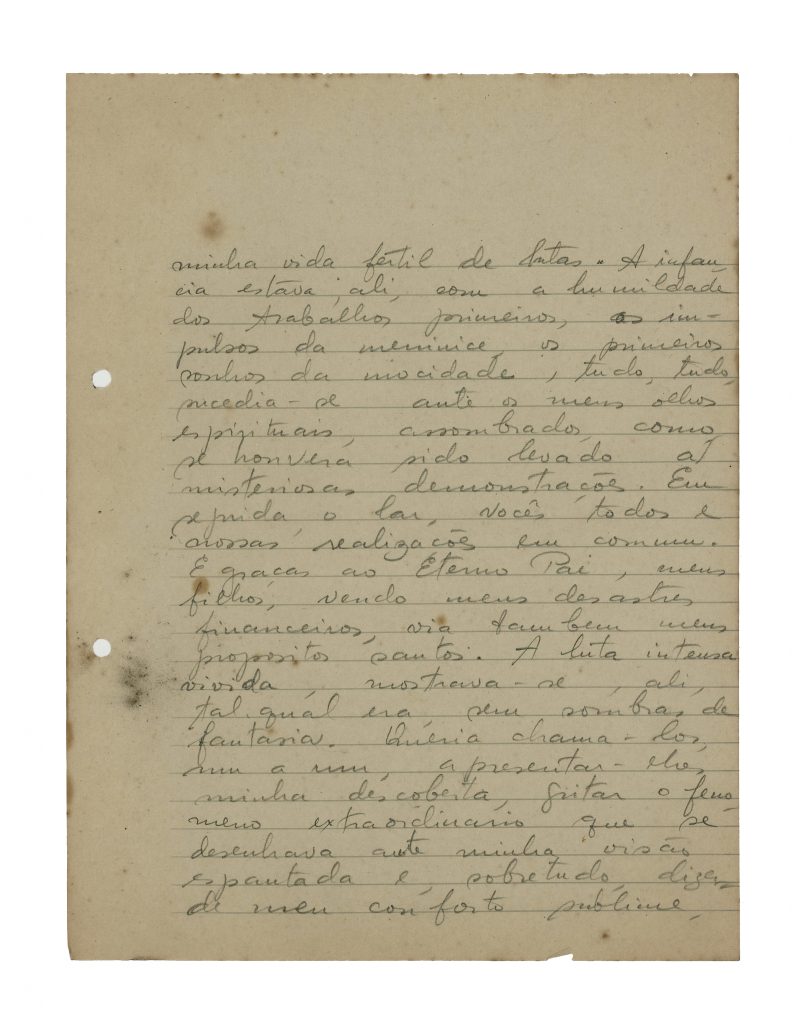 minha vida fértil de lutas. A infan-
cia estava, ali, com a humildade
dos trabalhos primeiros, os im-
pulsos da meninice, os primeiros
sonhos da mocidade, tudo, tudo,
sucedia-se ante os meus olhos
espirituais, assombrados, como
se houvera sido levado a
misteriosas demonstrações. Em
seguida, o lar, vocês todos e
nossas realizações em commum.
E graças ao Eterno Pai, meus
filhos, vendo meus desastres
financeiros, via tambem meus
propositos santos. A luta intensa
vivida, mostrava-se, ali,
tal qual era, sem sombras de
fantasia. Queria chama-los,
um a um, apresentar-lhes
minha descoberta, gritar o feno-
meno extraordinario que se
desenhava ante minha visão
espantada e, sobretudo, dizer
de meu conforto sublime,